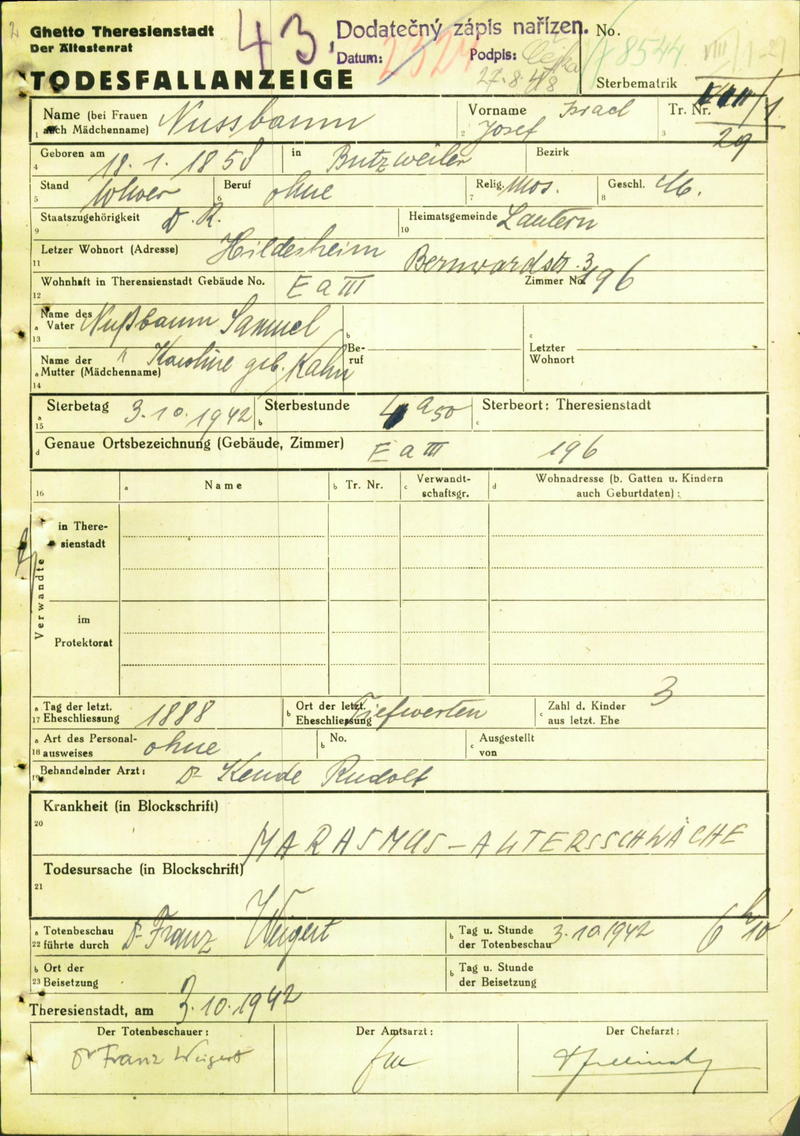 Ghetto Theresienstadt
Der Ältestenrat
43
Dodatečný zápis nařízen.
Datum: Podpis:
27.8.48
No. 8544
Sterbematrik
TODESFALLANZEIGE
Name (bei Frauen auch Mädchenname) Nussbaum
Vorname Josef Israel
Tr. Nr. VIII/1
29
Geboren am 18.1.1858 in Butzweiler Bezirk
Stand Witwer Beruf ohne Relig. Mos. Geschl. M.
Staatszugehörigkeit D.R. Heimatsgemeinde Lautern
Letzer Wohnort (Adresse) Hildesheim Bernwardstr. 3
Wohnhaft in Therensienstadt Gebäude No. E a III Zimmer No. 196
Name des Vater Nußbaum Samuel
Be-ruf
Letzter Wohnort
Name der Mutter (Mädchenname) " Karoline geb. Kahn
Sterbetag 3.10.1942 Sterbestunde 4 a 50 Sterbeort: Theresienstadt
Genaue Ortsbezeichnung (Gebäude, Zimmer) E a III 196
16 a Name b Tr. Nr. c Verwandt-schaftsgr. d Wohnadresse (b. Gatten u. Kindern auch Geburtdaten):
Verwandte
in There-sienstadt
im Protektorat
Tag der letzt. Eheschliessung 1888 Ort der letzt. Eheschliessung Tiefwerten Zahl d. Kinder aus letzt. Ehe 3
Art des Personal-ausweises ohne No. Ausgestellt von
Behandelnder Arzt: Dr Kende Rudolf
Krankheit (in Blockschrift)
MARASMUS - ALTERSSCHWÄCHE
Todesursache (in Blockschrift)
Totenbeschau führte durch Dr Franz Weigert Tag u. Stunde der Totenbeschau 3.10.1942 6 h 10'
Ort der Beisetzung Tag u. Stunde der Beisetzung
Theresienstadt, am 3.10.1942
Der Totenbeschauer: Der Amtsarzt: Der Chefarzt:
Dr Franz Weigert